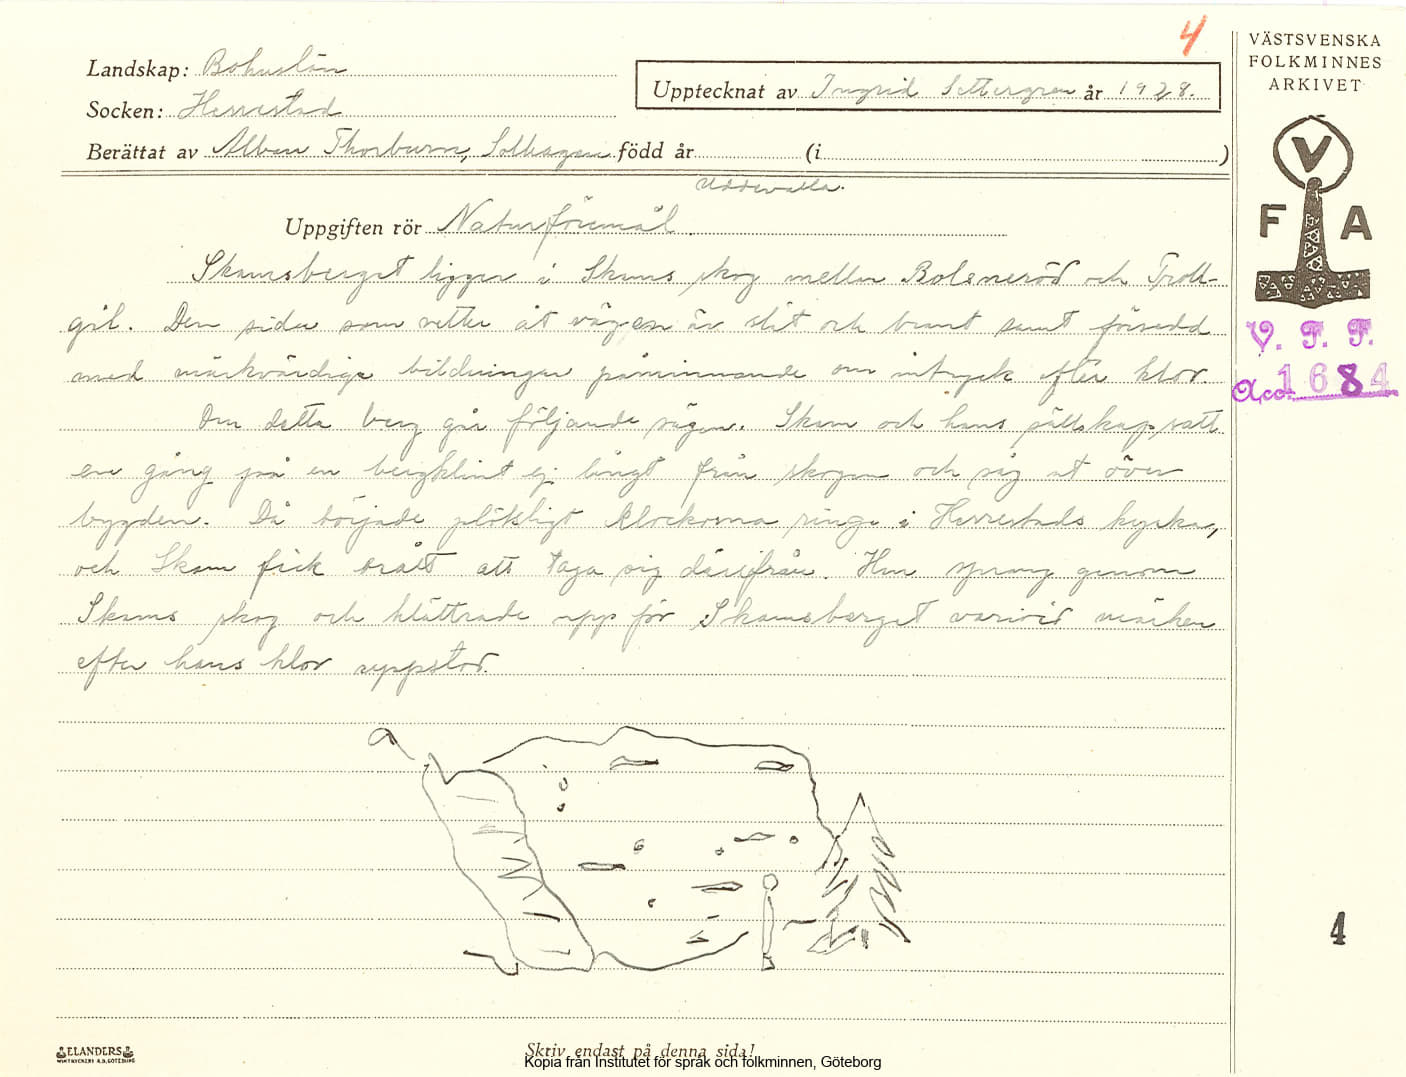 4
Landskap: Bohuslän
Socken: Herrestad
Upptecknat av Ingrid Settergren år 1928.
Berättat av Alban Thorburn, Solhagen född år (i )
Uddevalla.
Uppgiften rör Naturföremål.
Skamsberget ligger i Skams skog mellan Bolsneröd och Troll-
gil. Den sidan som vetter åt vägen är slät och brant samt försedd
med märkvärdiga bildningar påminnande om intryck efter klor.
Om detta berg går följande sägen. Skam och hans sällskap satt
en gång på en bergklint ej långt från skogen och såg ut över
bygden. Då började plötsligt klockorna ringa i Herrestads kyrka,
och Skam fick brått att taga sig därifrån. Han sprang genom
Skams skog och klättrade upp för Skamsberget varvid märken
efter hans klor uppstod.
VÄSTSVENSKA
FOLKMINNES
ARKIVET
V
F A
V. F. F.
Acc. 1684
4
ELANDERS
Skriv endast på denna sida!
Kopia från Institutet för språk och folkminnen, Göteborg